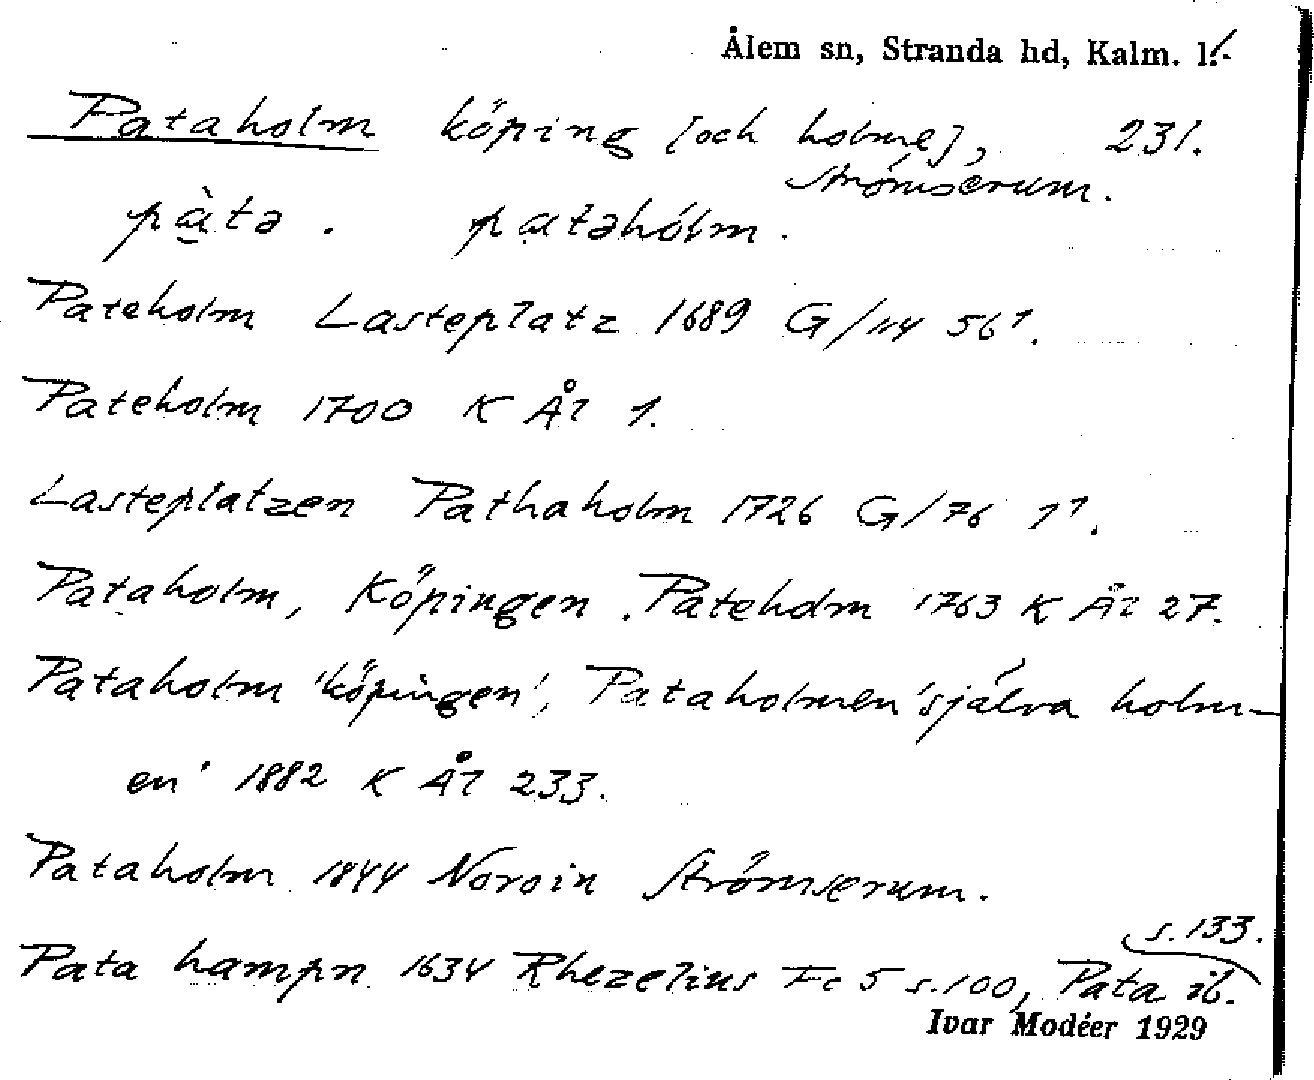 Ålem sn, Stranda hd, Kalm. l.
Pataholm köping [och holme], 231.
Strömserum.
pàta. patahólm.
Pateholm Lasteplatz 1689 G/44 56¹.
Pateholm 1700 K Ål 1.
Lasteplatzen Pathaholm 1726 G/76 1¹.
Pataholm, Köpingen. Pateholm 1763 K Ål 27.
Pataholm 'köpingen', Pataholmen 'själva holm-
en' 1882 K Ål 233.
Pataholm 1844 Strömserum.
s. 133.
Pata hampn 1634 Rhezelius Fc 5 s. 100, Pata ib.
Ivar Modéer 1929